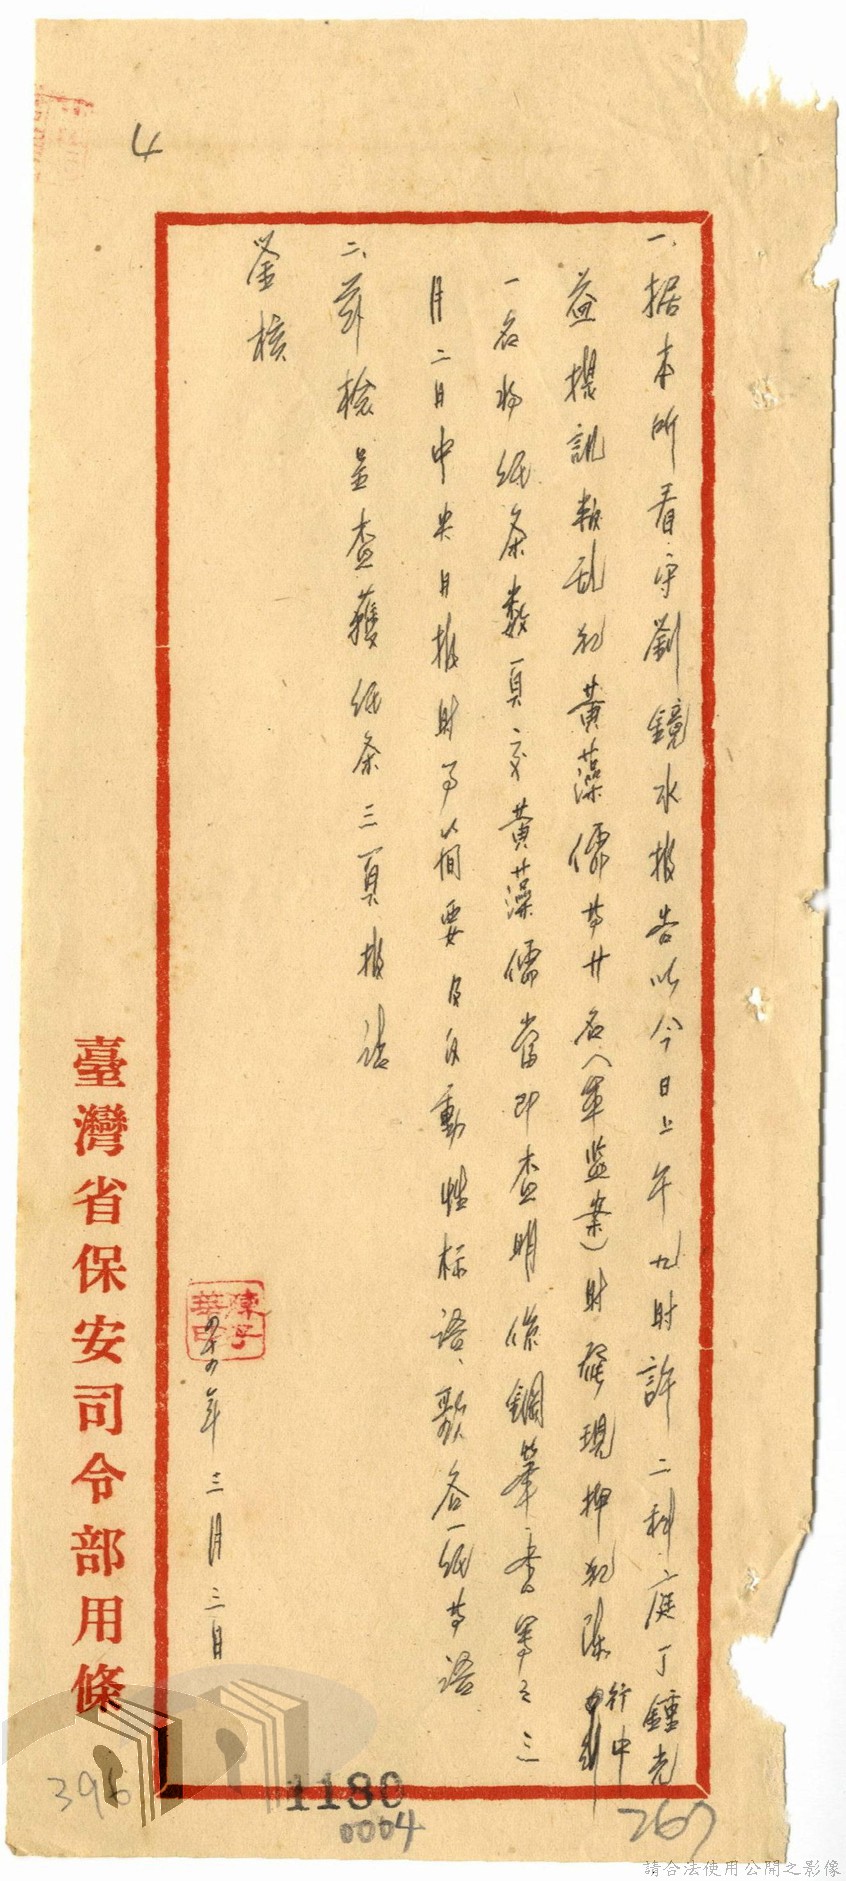 4
一、据本所看守劉鏡水报告以今日上午九时許二科庭丁鍾光
益提訊叛乱犯黃藻儒等廿名(軍監案)时發現押犯陈行中
一名将纸条数頁交黃藻儒當即查明係鋼筆書写之三
月二日中央日报时事简要及自動性标語、歌各一纸等語
二、茲檢呈查獲纸条三頁报請
鉴核
陳子華印
四十四年三月三日
臺灣省保安司令部用條
396
1180
0004
267
請合法使用公開之影像